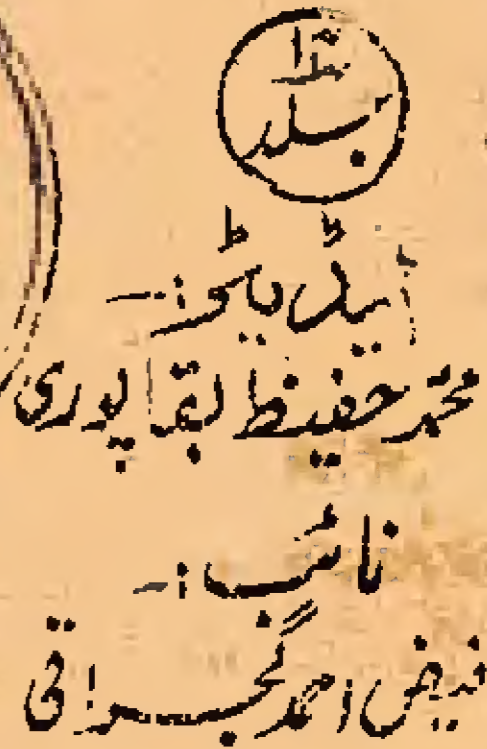 جلد
ایڈیٹر :۔
محمد حفیظ بقاپوری
نائب :۔
فیض احمد گجراتی